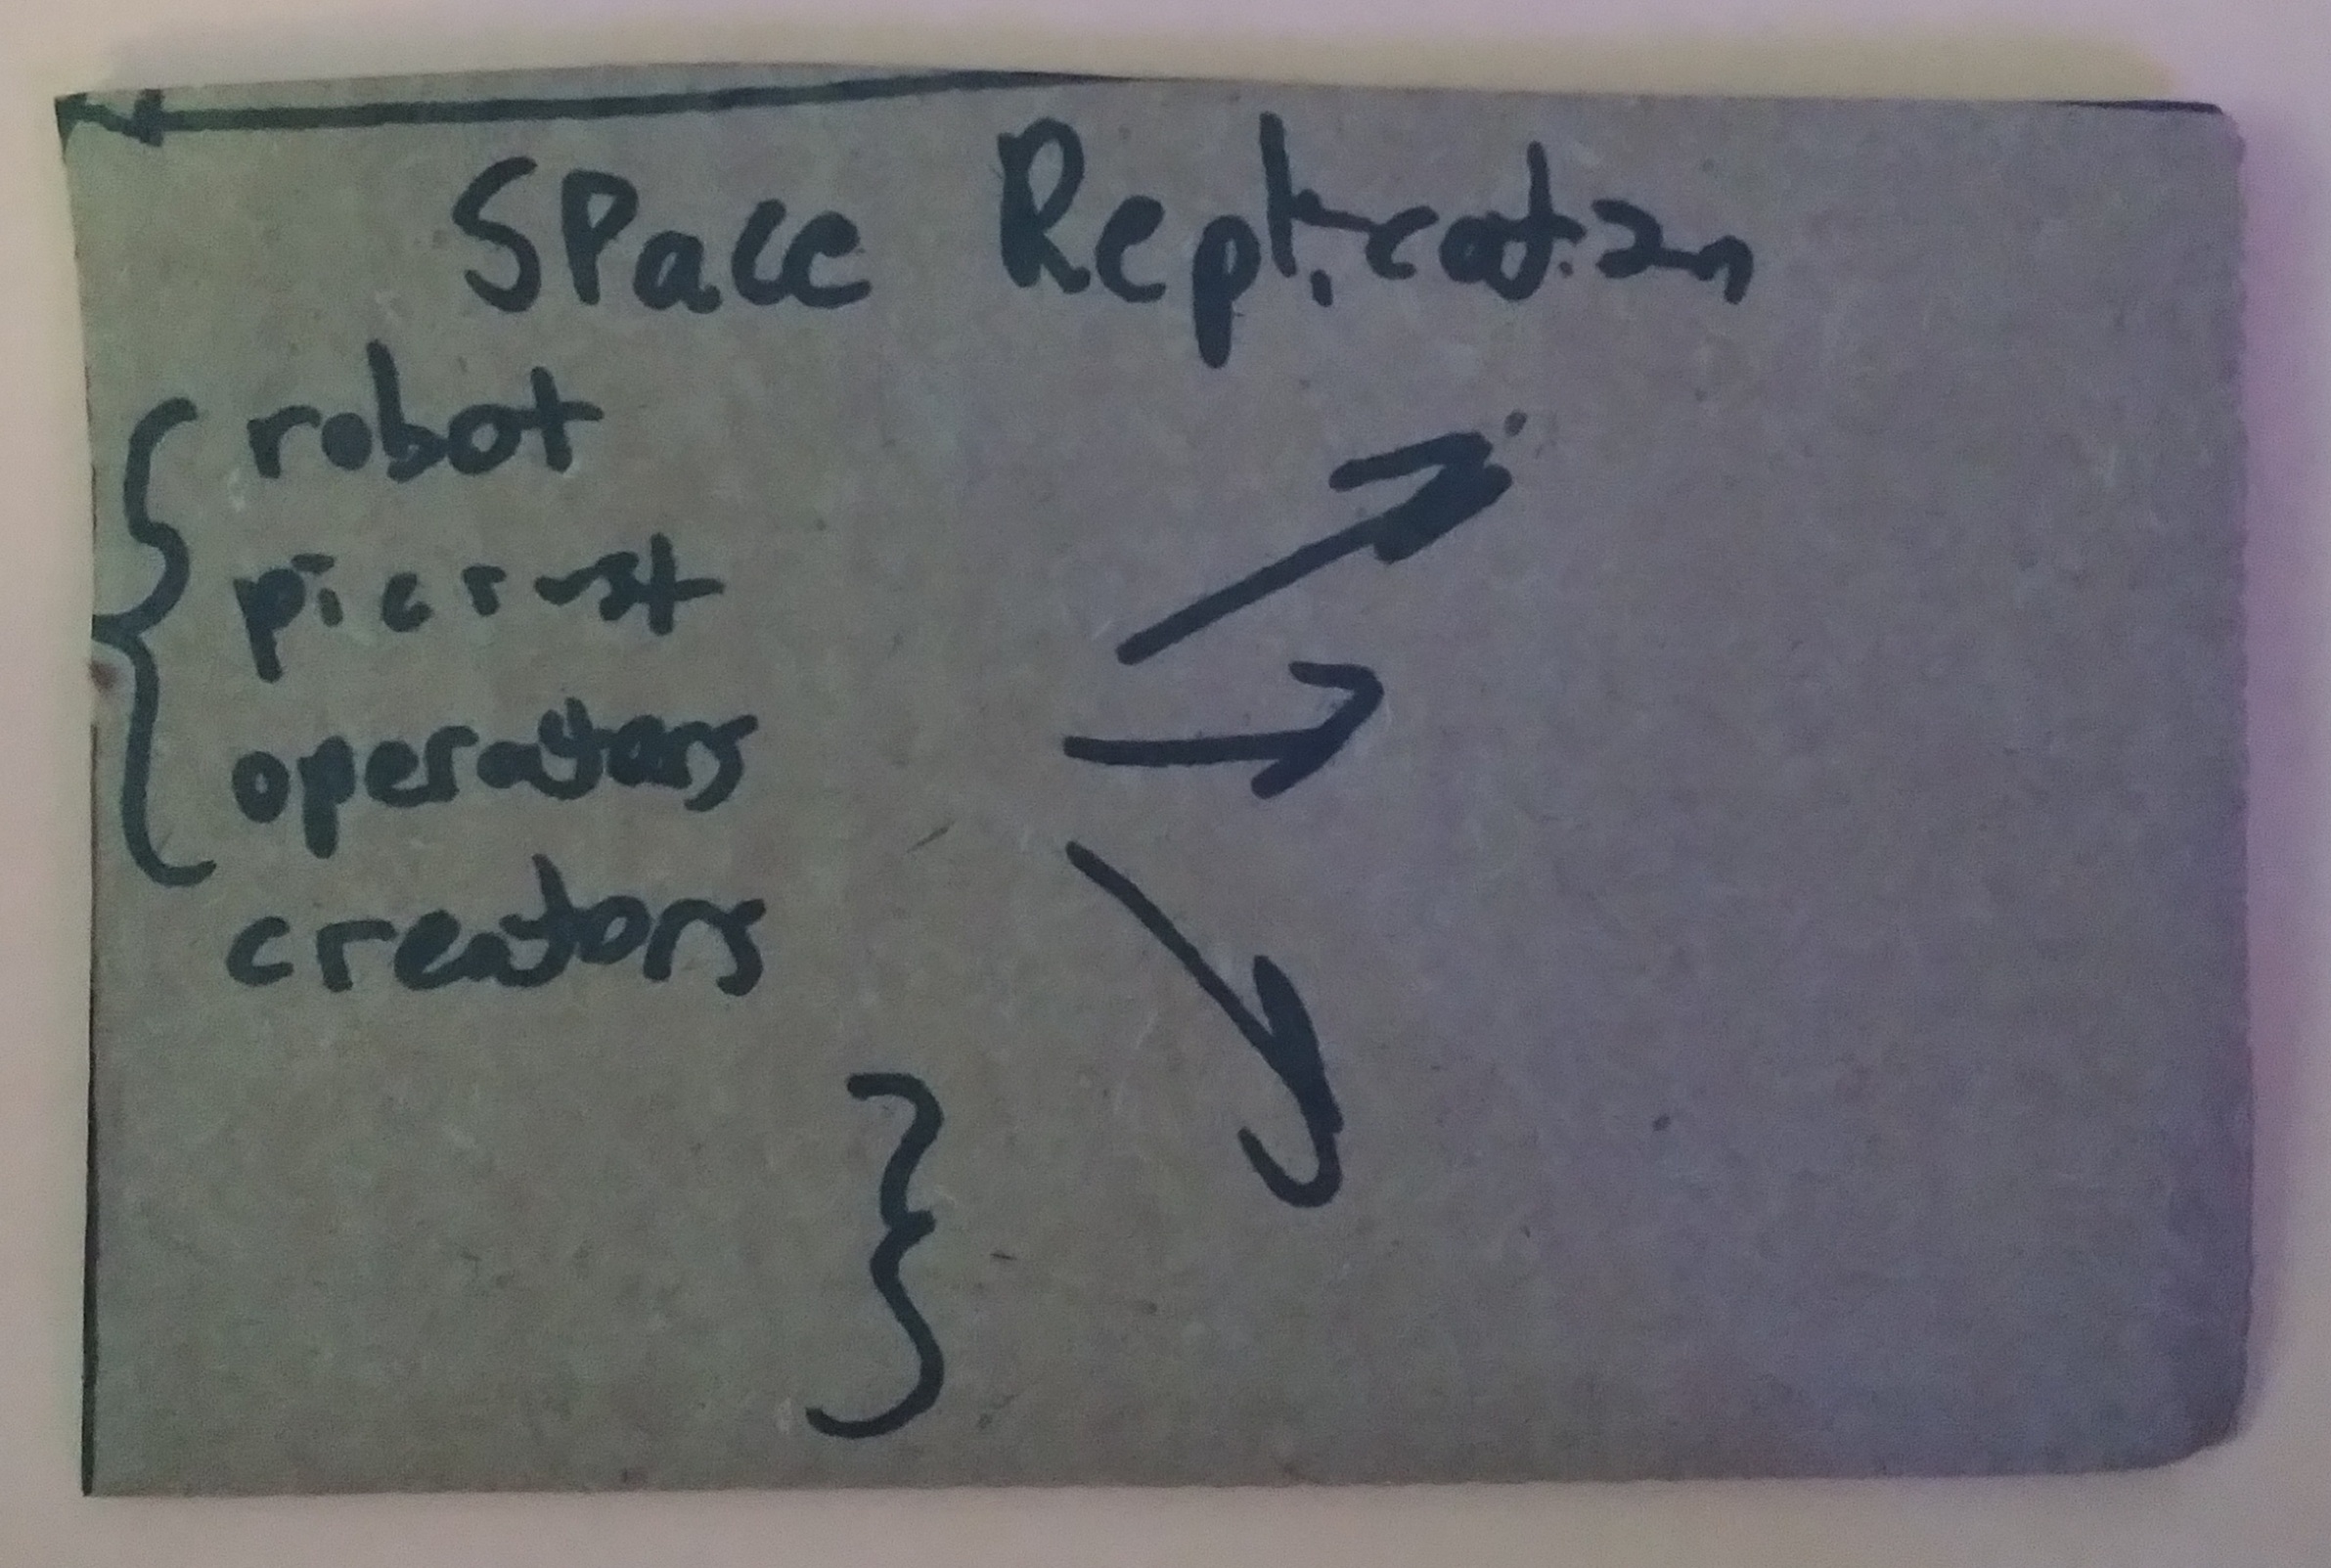 SPace Replication
robot
picrust
operators
creators